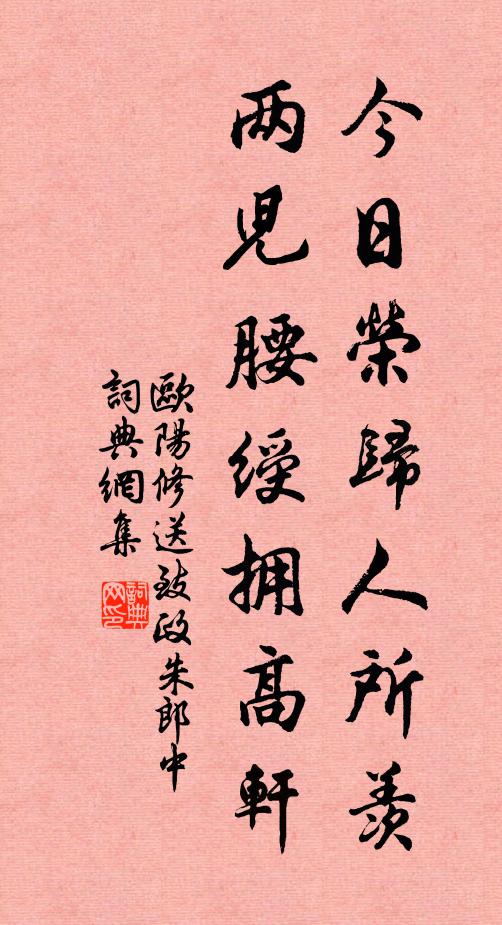 今日榮歸人所羨
两兒腰綬拥高軒
歐陽修送致政朱郎中
詞典網集
詞典网印